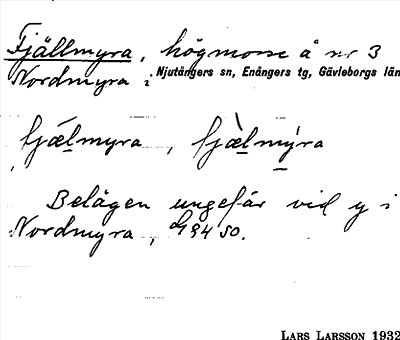 Fjällmyra, högmosse å nr 3
Nordmyra i Njutångers sn, Enångers tg, Gävleborgs län
fjæ̀lmyra, fjæ̀lmy̌ra
Belägen ungefär vid y i
Nordmyra, d 94 SO.
LARS LARSSON 1932